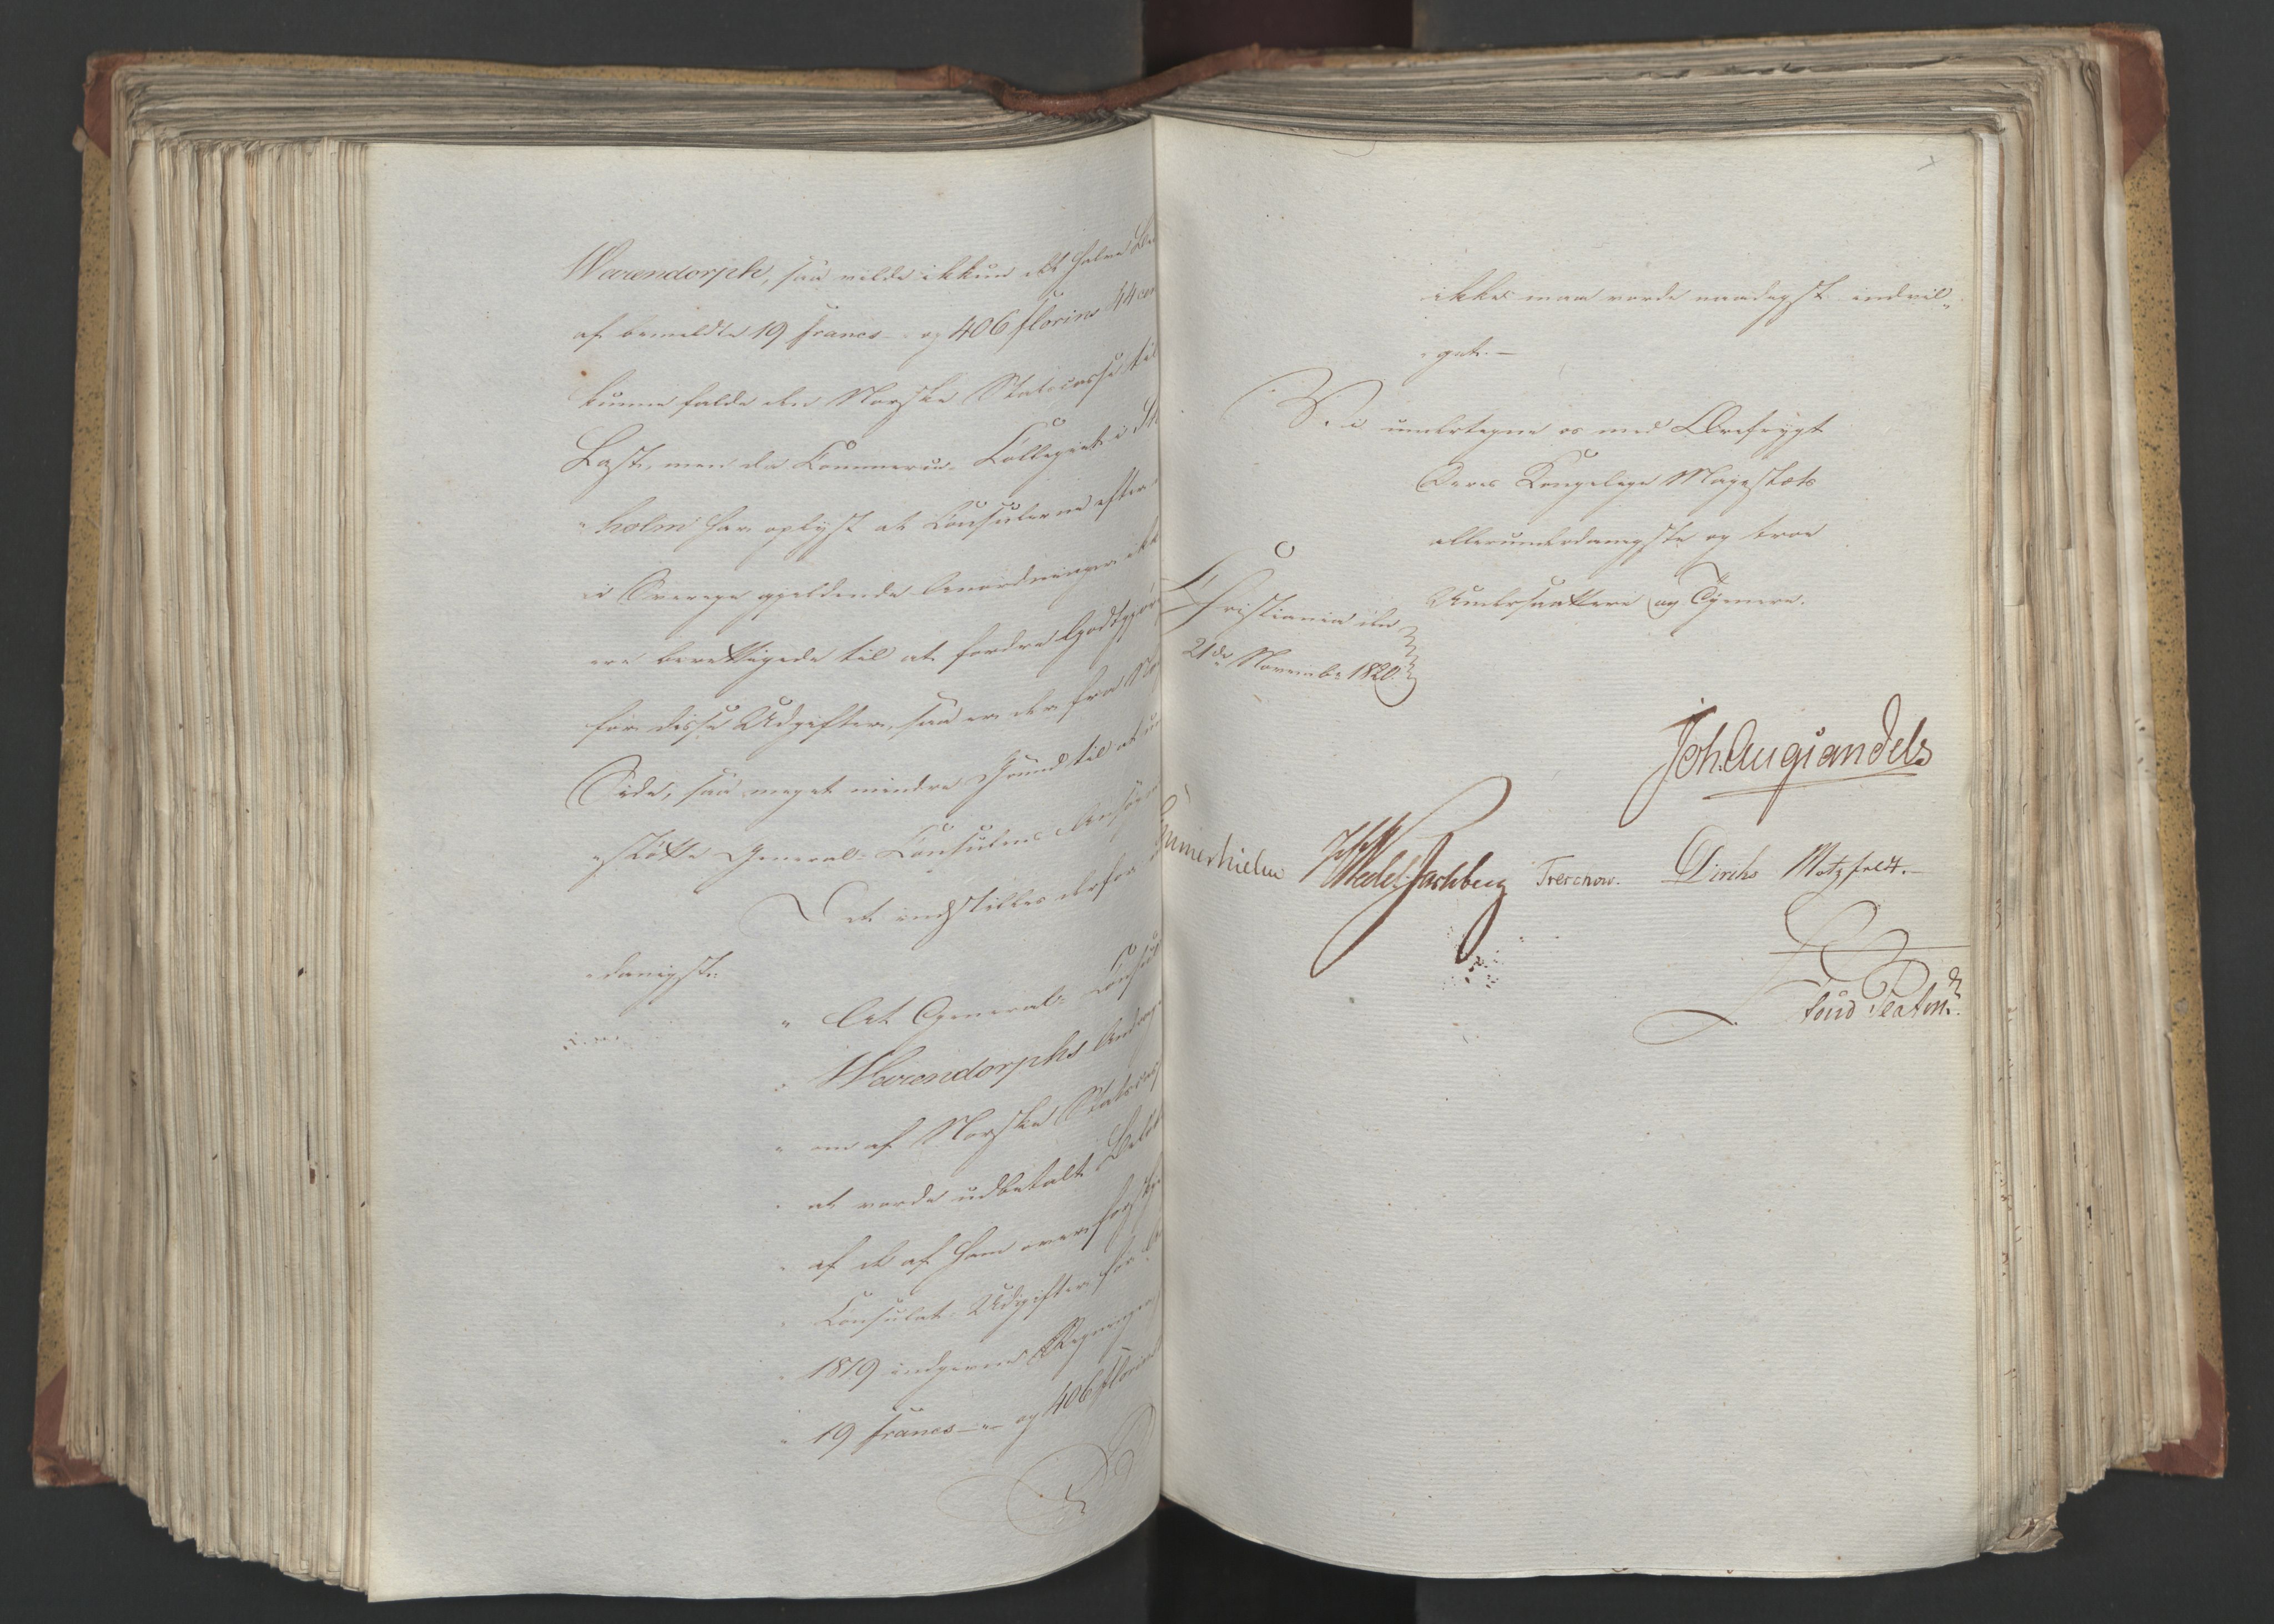 Warendorph, saa vilde ikkun det halve
af bemeldte 19 francs - og 406 florins 44
kunne falde den Norske Statscasse til
Last, men da Commerce-Collegiet i
"holm har oplyst at Consulerne efter
i Sverige gjeldende Anordninger
ere berettigede til at fordre Godtgjør
for disse Udgifter, saa er der fra
Side, saa meget mindre Grund til at
"støtte General-Consulens
Det indstilles derfor
"danigst:
" At General-Consul
" Warendorphs
" om af Norske
" at vorde udbetalt
" af de af ham over
" Consulat-Udgifter for
" 1819 indgivne Regninger
" 19 francs - " - og 406 florins
ikke maa vorde naadigst indvil"
"get. -
Vi undertegne os med Ærefrygt
Deres Kongelige Majestæts
allerunderdanigste og troe
Undersaatter og Tjenere.
Christiania den
21de Novembr 1820.
Joh. Aug Sandels
Sommerhielm Wedel-Jarlsberg Treschow. Diriks Motzfeldt. -